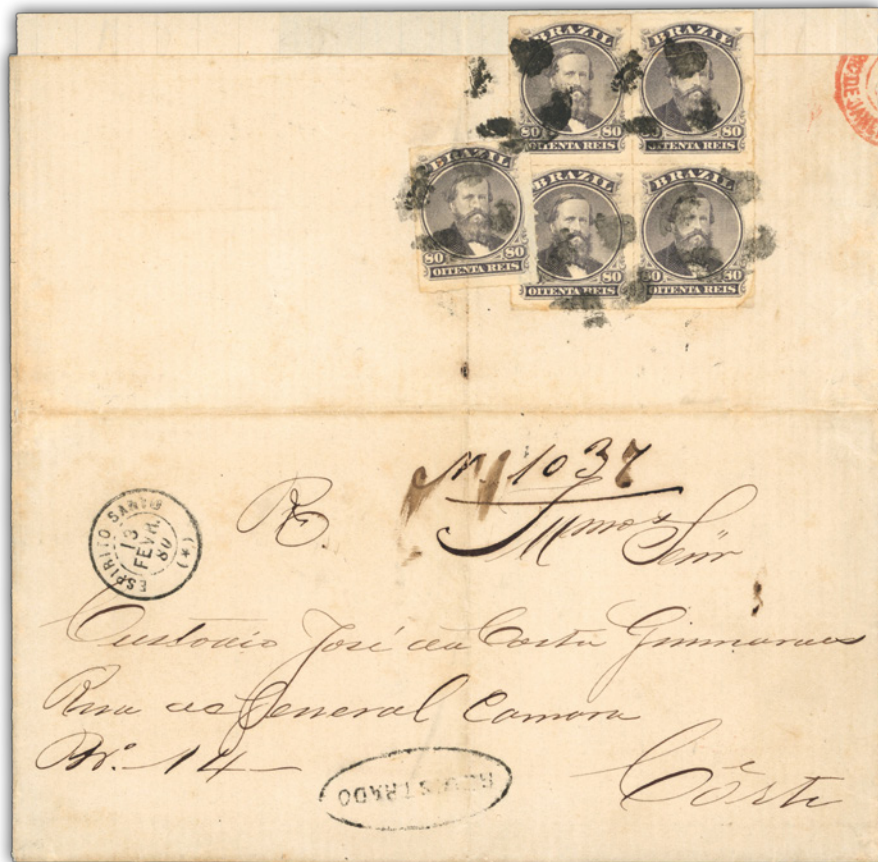 BRAZIL
80 80
OITENTA REIS
BRAZIL
80 80
OITENTA REIS
BRAZIL
80 80
OITENTA REIS
BRAZIL
80
OITENTA REIS
BRAZIL
80 80
OITENTA REIS
DE JANE
N. 1037
R.
Illmos Senr
ESPIRITO SANTO
13
FEVR.
80
(*)
Custodio José da Costa Guimaraes
Rua de General Camara
Nº. 14
REGISTRADO
Côrte